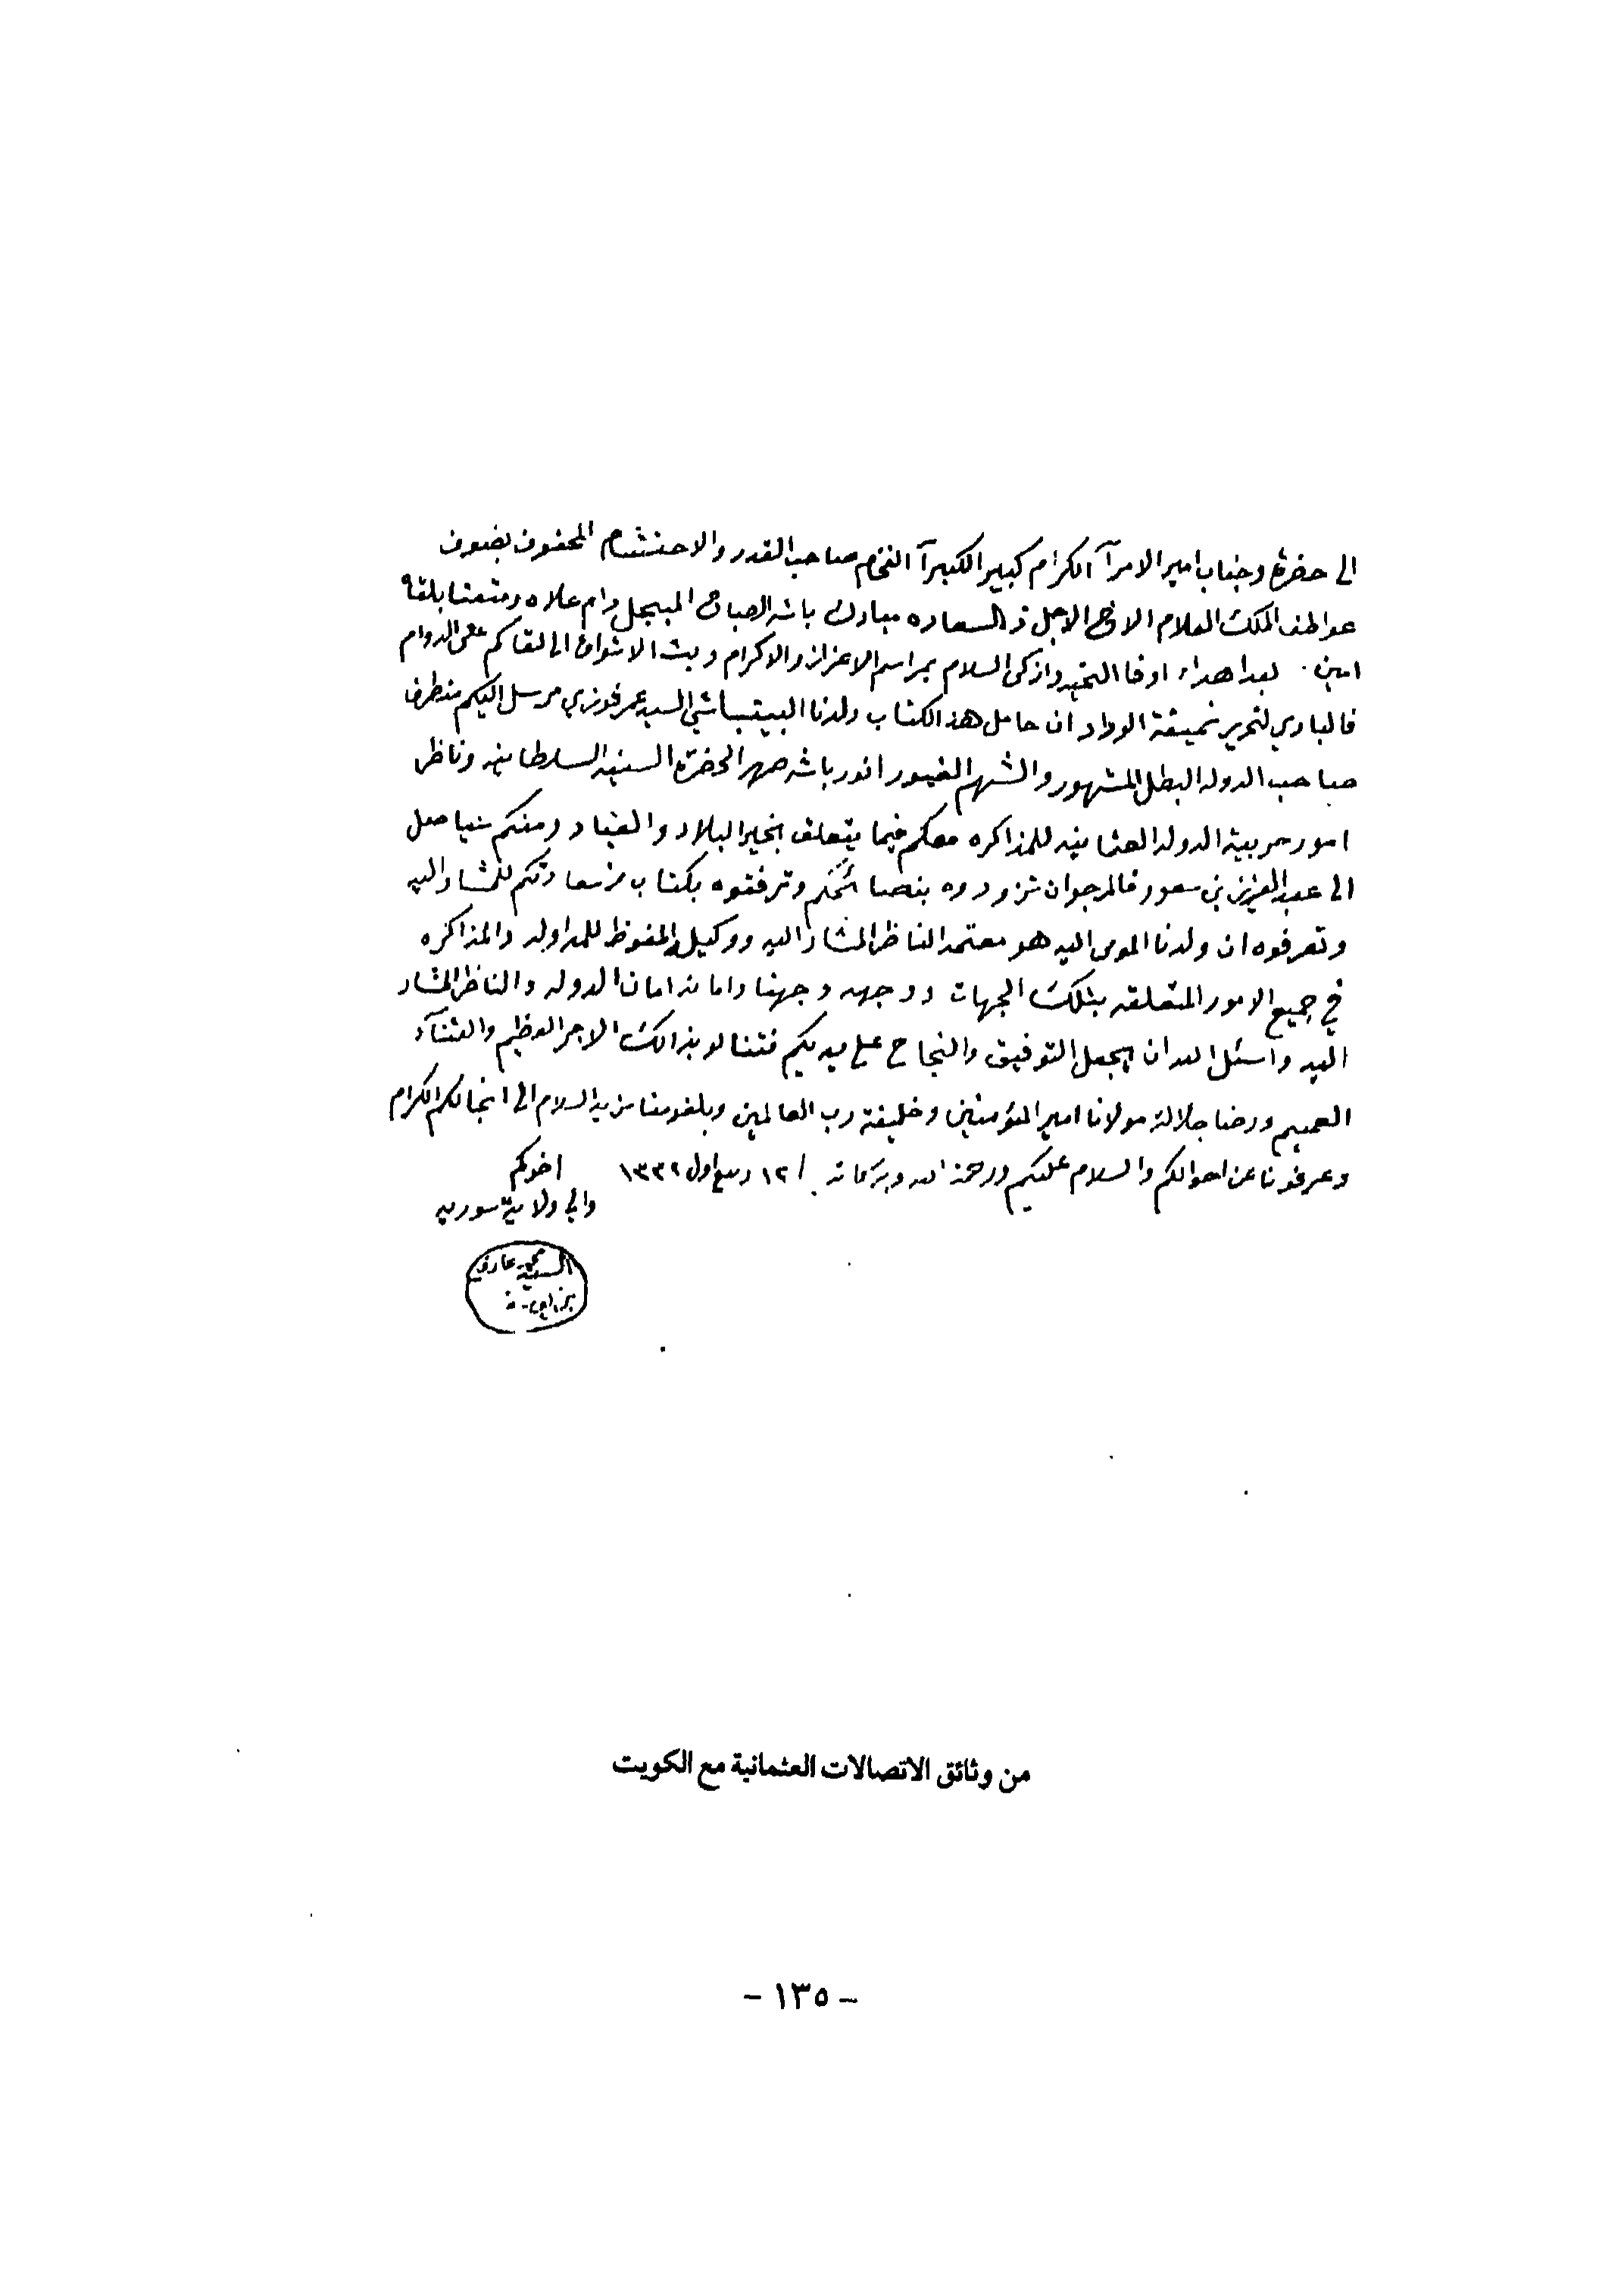 الى حضرة وجناب امير الامرآ الكرام كبير الكبرآ الفخام صاحب القدر والاحتشام المحفوف بصنوف
عواطف الملك العلام الاخ الاجل ذ السعاده مبارك باشه الصباح المبجل دام علاه ومتعنا بلقاه
امين . بعد اهداء اوفا التحيه وازكى السلام بمراسم الاعزاز والاكرام وبث الاشواق الى لقاكم على الدوام
فالبادي لتحرير نميقة الوداد ان حامل هذ الكتاب ولدنا البيتباشي السيد عمر فوزي مرسل اليكم منطرف
صاحب الدوله البطل المشهور والشهم الغيور انور باشه صهر الحضرة السنيه السلطانيه وناظر
امور حربية الدوله العثمانيه للمذاكره معكم فيما يتعلق بخير البلاد والعباد ومنكم
الى عبد العزيز بن سعود فالمرجو ان تزودوه بنصائحكم وترفقوه بكتاب من سعادتكم للمشار اليه
وتعرفوه ان ولدنا المومى اليه هو معتمد الناظر المشار اليه ووكيله المفوظ للمداوله والمذاكره
في جميع الامور المتعلقه بتلك الجهات ووجهه وجهنا وامانه امان الدوله والناظر المشار
اليه واسئل الله ان يجعل التوفيق والنجاح على يديكم فتنالو بذالك الاجر العظيم والثنآء
العميم ورضا جلالة مولانا امير المؤمنين وخليفة رب العالمين وبلغو منا مزيد السلام الى انجالكم الكرام
وعرفونا عن احوالكم والسلام عليكم ورحمة الله وبركاته . / ١٢ ربيع اول ١٣٣٢ اخوكم
والي ولاية سوريه
السيد محمد عارف
من وثائق الاتصالات العثمانية مع الكويت
- ١٣٥ -